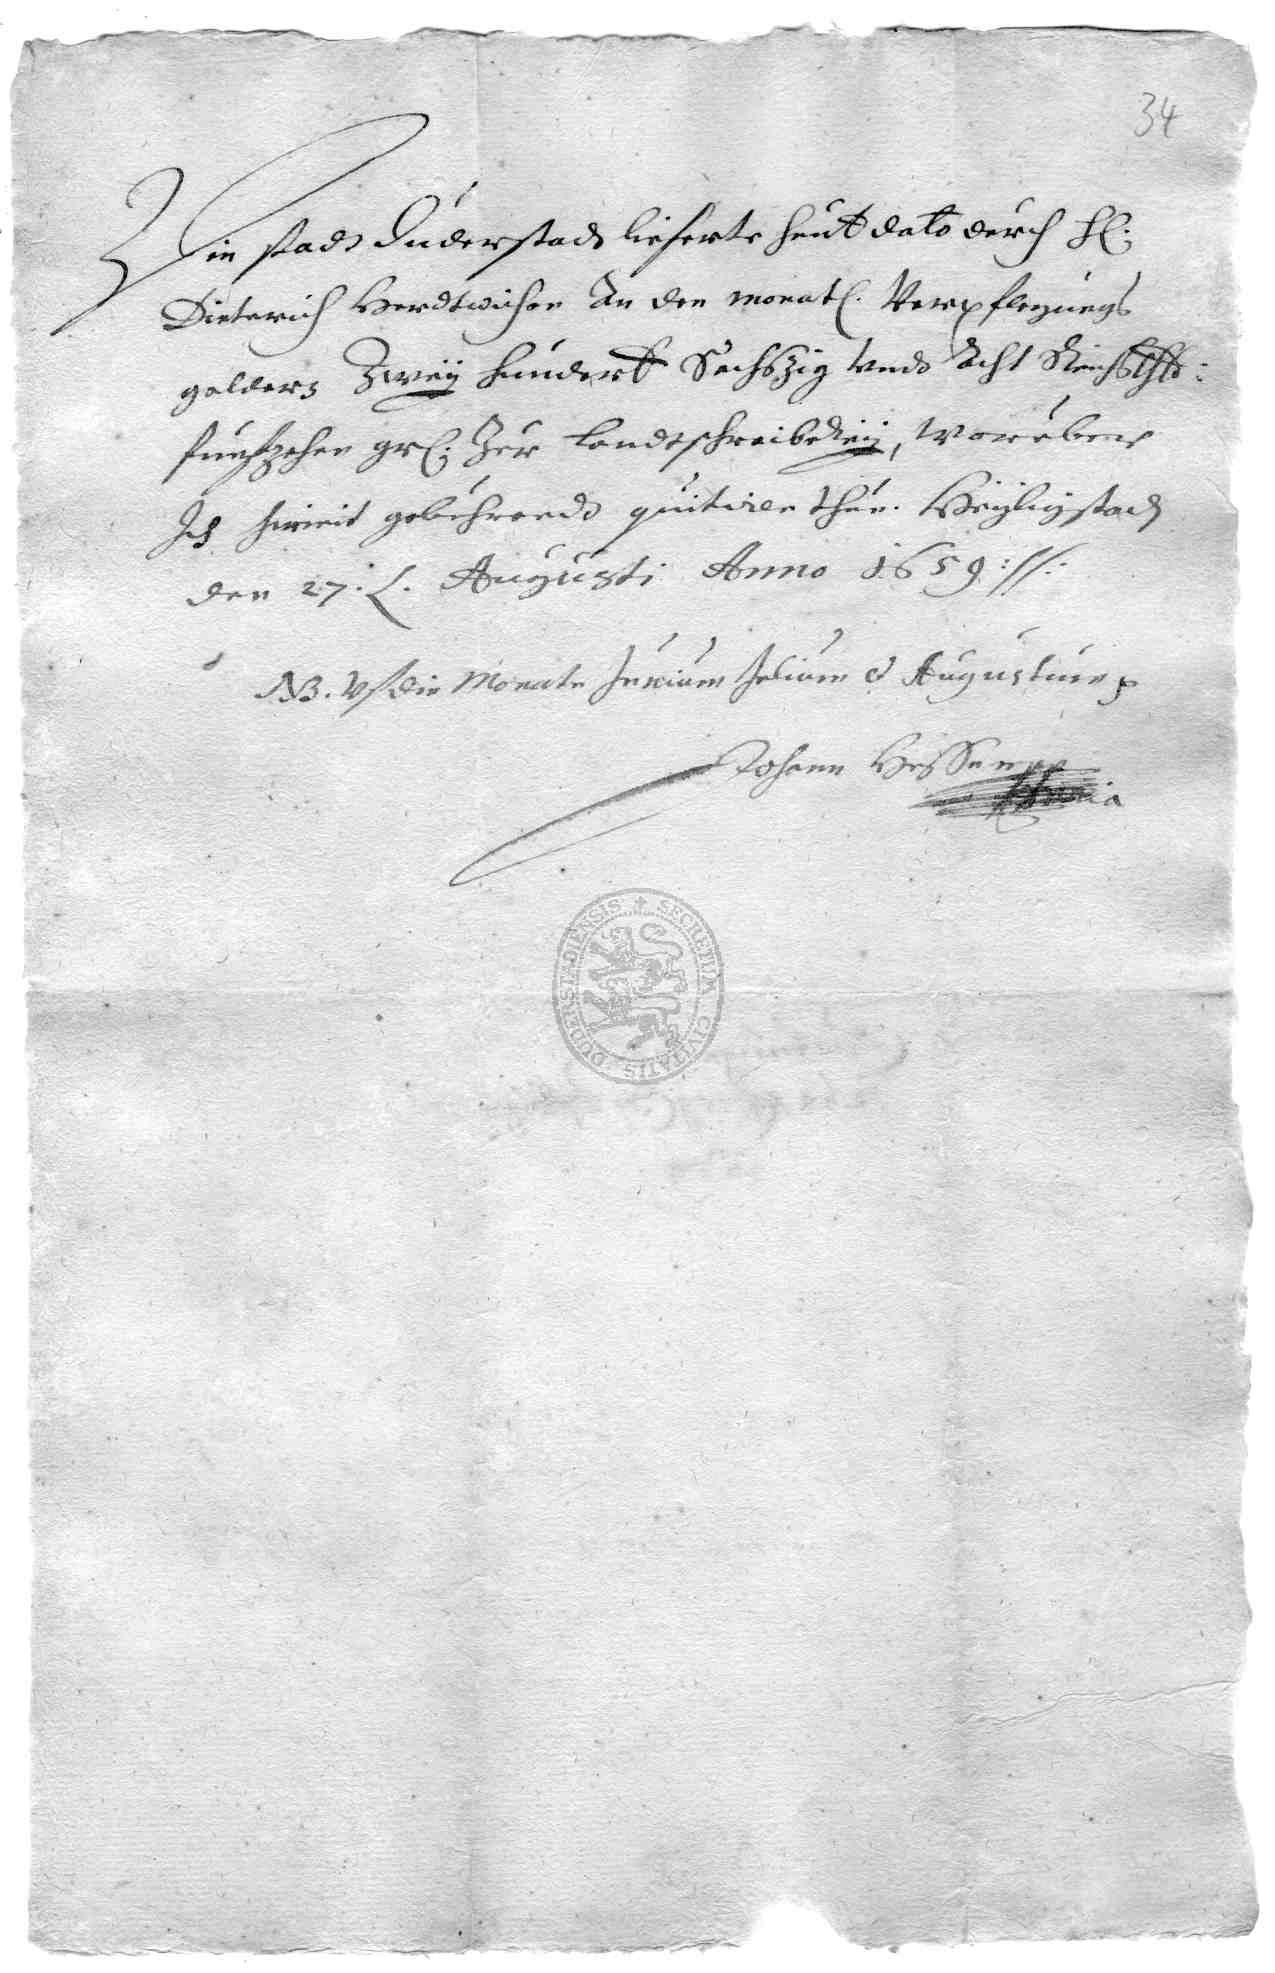 34
Die stadt Duderstadt lieferte heut dato durch H:
Dieterich Herdtwichen An den monatl. Verpflegungs
geldern Zweÿ hundert Sechszig Vndt Acht Reichsthlr:
funfzehen gr: Zur Landtschreibereÿ, Worüber
Ich hiemit gebührendt quitiren thue. Heÿligstadt
den 27. Augusti Anno 1659
NB. Vf die Monate Junium Julium et Augustum
Johann
SECRETUM CIVITATIS DUDERSTADIENSIS